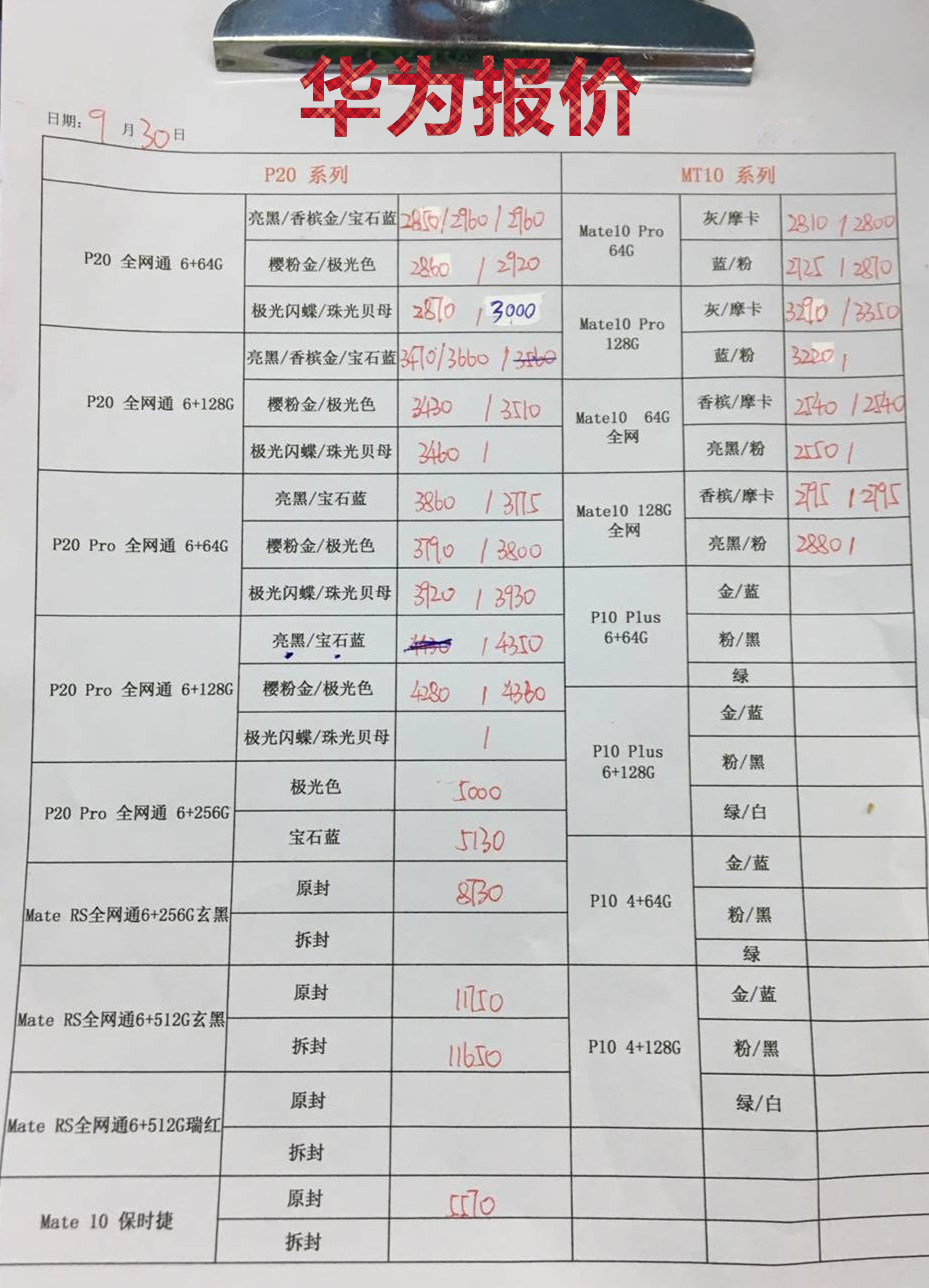 华为报价
日期: 9 月 30 日
P20 系列 MT10 系列
P20 全网通 6+64G
亮黑/香槟金/宝石蓝 2850/2960/2960
樱粉金/极光色 2860 / 2920
极光闪蝶/珠光贝母 2870 / 3000
P20 全网通 6+128G
亮黑/香槟金/宝石蓝 3470/3660 / 3560
樱粉金/极光色 3430 / 3510
极光闪蝶/珠光贝母 3460 /
P20 Pro 全网通 6+64G
亮黑/宝石蓝 3860 / 3775
樱粉金/极光色 3790 / 3800
极光闪蝶/珠光贝母 3920 / 3930
P20 Pro 全网通 6+128G
亮黑/宝石蓝 / 4350
樱粉金/极光色 4280 / 4330
极光闪蝶/珠光贝母 /
P20 Pro 全网通 6+256G
极光色 5000
宝石蓝 5130
Mate RS全网通6+256G玄黑
原封 8730
拆封
Mate RS全网通6+512G玄黑
原封 11750
拆封 11650
Mate RS全网通6+512G瑞红
原封
拆封
Mate 10 保时捷
原封 5570
拆封
Mate10 Pro
64G
灰/摩卡 2810 / 2800
蓝/粉 2725 / 2870
Mate10 Pro
128G
灰/摩卡 3290 / 3350
蓝/粉 3220 /
Mate10 64G
全网
香槟/摩卡 2540 / 2540
亮黑/粉 2550 /
Mate10 128G
全网
香槟/摩卡 2795 / 2795
亮黑/粉 2880 /
P10 Plus
6+64G
金/蓝
粉/黑
绿
P10 Plus
6+128G
金/蓝
粉/黑
绿/白
P10 4+64G
金/蓝
粉/黑
绿
P10 4+128G
金/蓝
粉/黑
绿/白